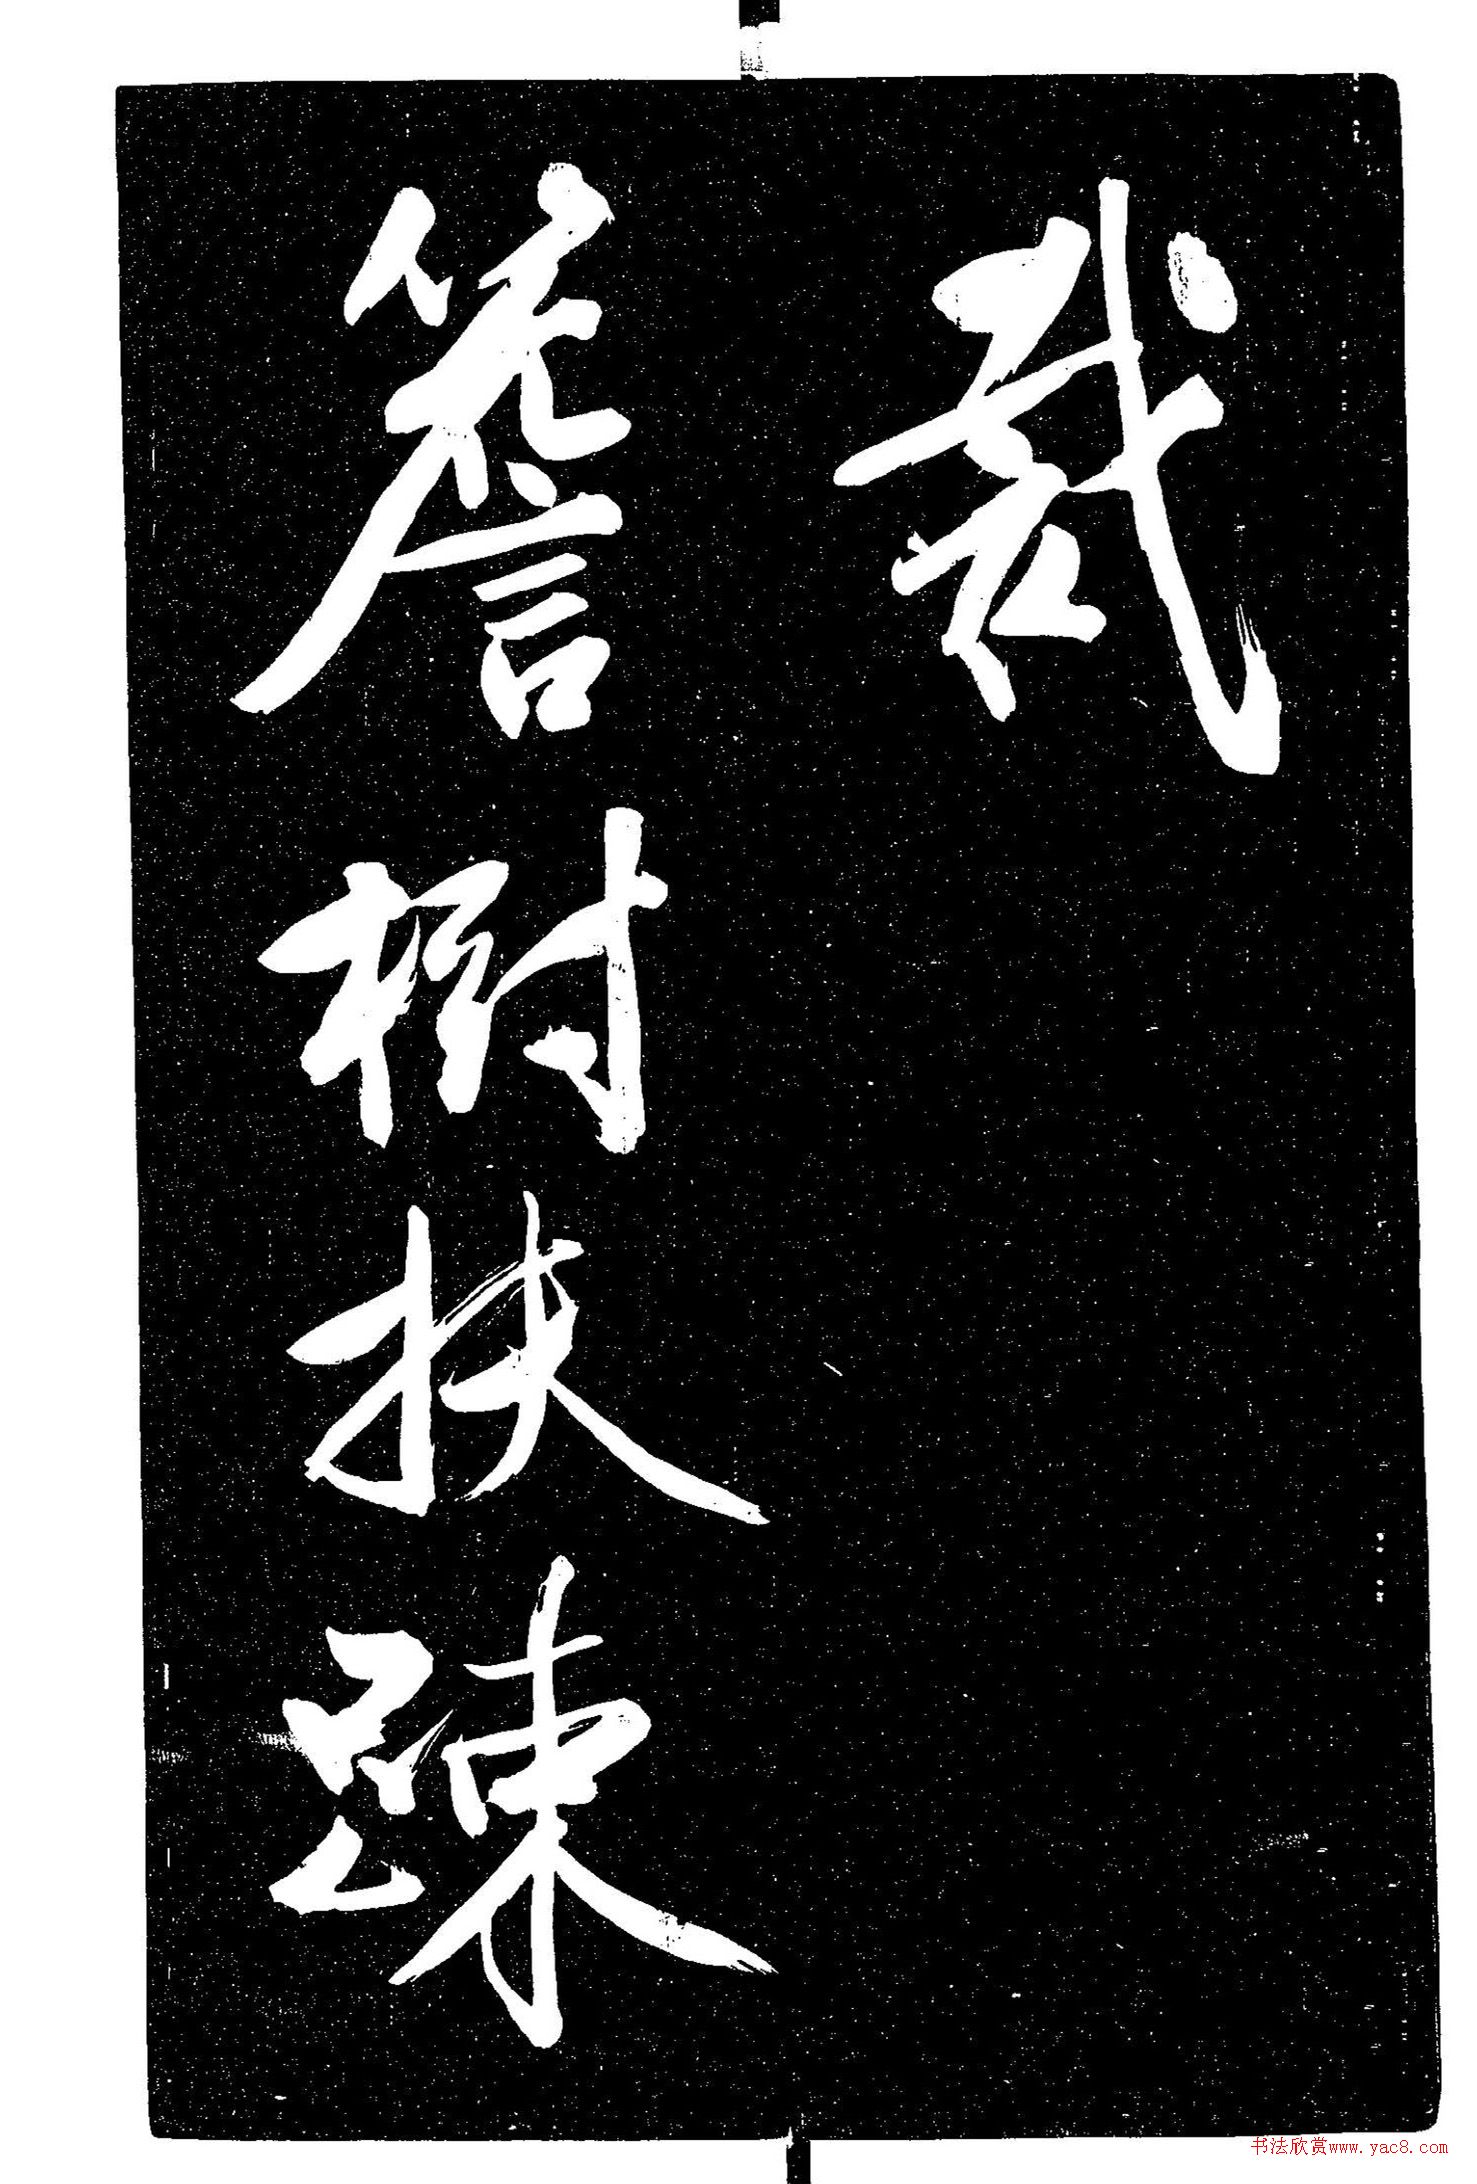 裁
簷樹扶踈
书法欣赏www.yac8.com